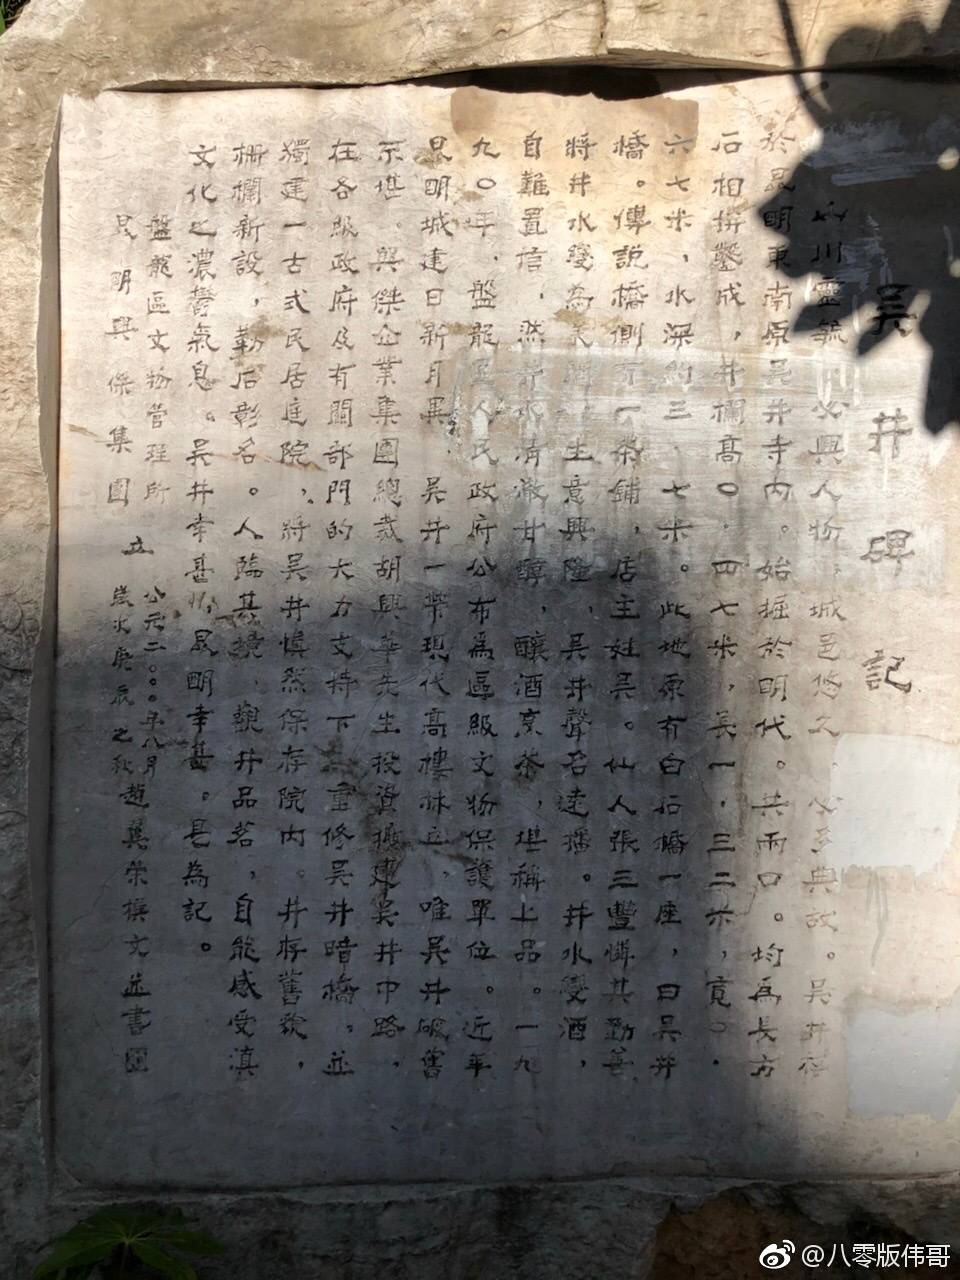 吳井碑記
川靈毓必興人物，城邑悠久，必多典故。吳井存
於昆明東南原吳井寺內。始掘於明代。共兩口。均為長方
石相拼鑿成，井欄高〇．四七米，長一．三二米，寬〇．
六七米，水深約三．七米。此地原有白石橋一座，曰吳井
橋。傳說橋側有一茶鋪，店主姓吳。仙人張三豐憐其勤善
將井水變為 生意興隆，吳井聲名遠播。井水變酒，
自難置信，然井水清澈甘醇，釀酒烹茶，堪稱上品。一九
九〇年，盤龍區人民政府公布為區級文物保護單位。近年
昆明城建日新月異，吳井一帶現代高樓林立，唯吳井破舊
不堪。興傑企業集團總裁胡興華先生投資擴建吳井中路，
在各級政府及有關部門的大力支持下，重修吳井暗橋。並
獨建一古式民居庭院，將吳井慎然保存院內。井存舊貌，
柵欄新設，勒石彰名。人臨其境，觀井品茗，自能感受滇
文化之濃鬱氣息。吳井幸甚，昆明幸甚。是為記。
盤龍區文物管理所
昆明興傑集團
立
公元二〇〇〇年八月
歲次庚辰之秋
趙 榮撰文並書